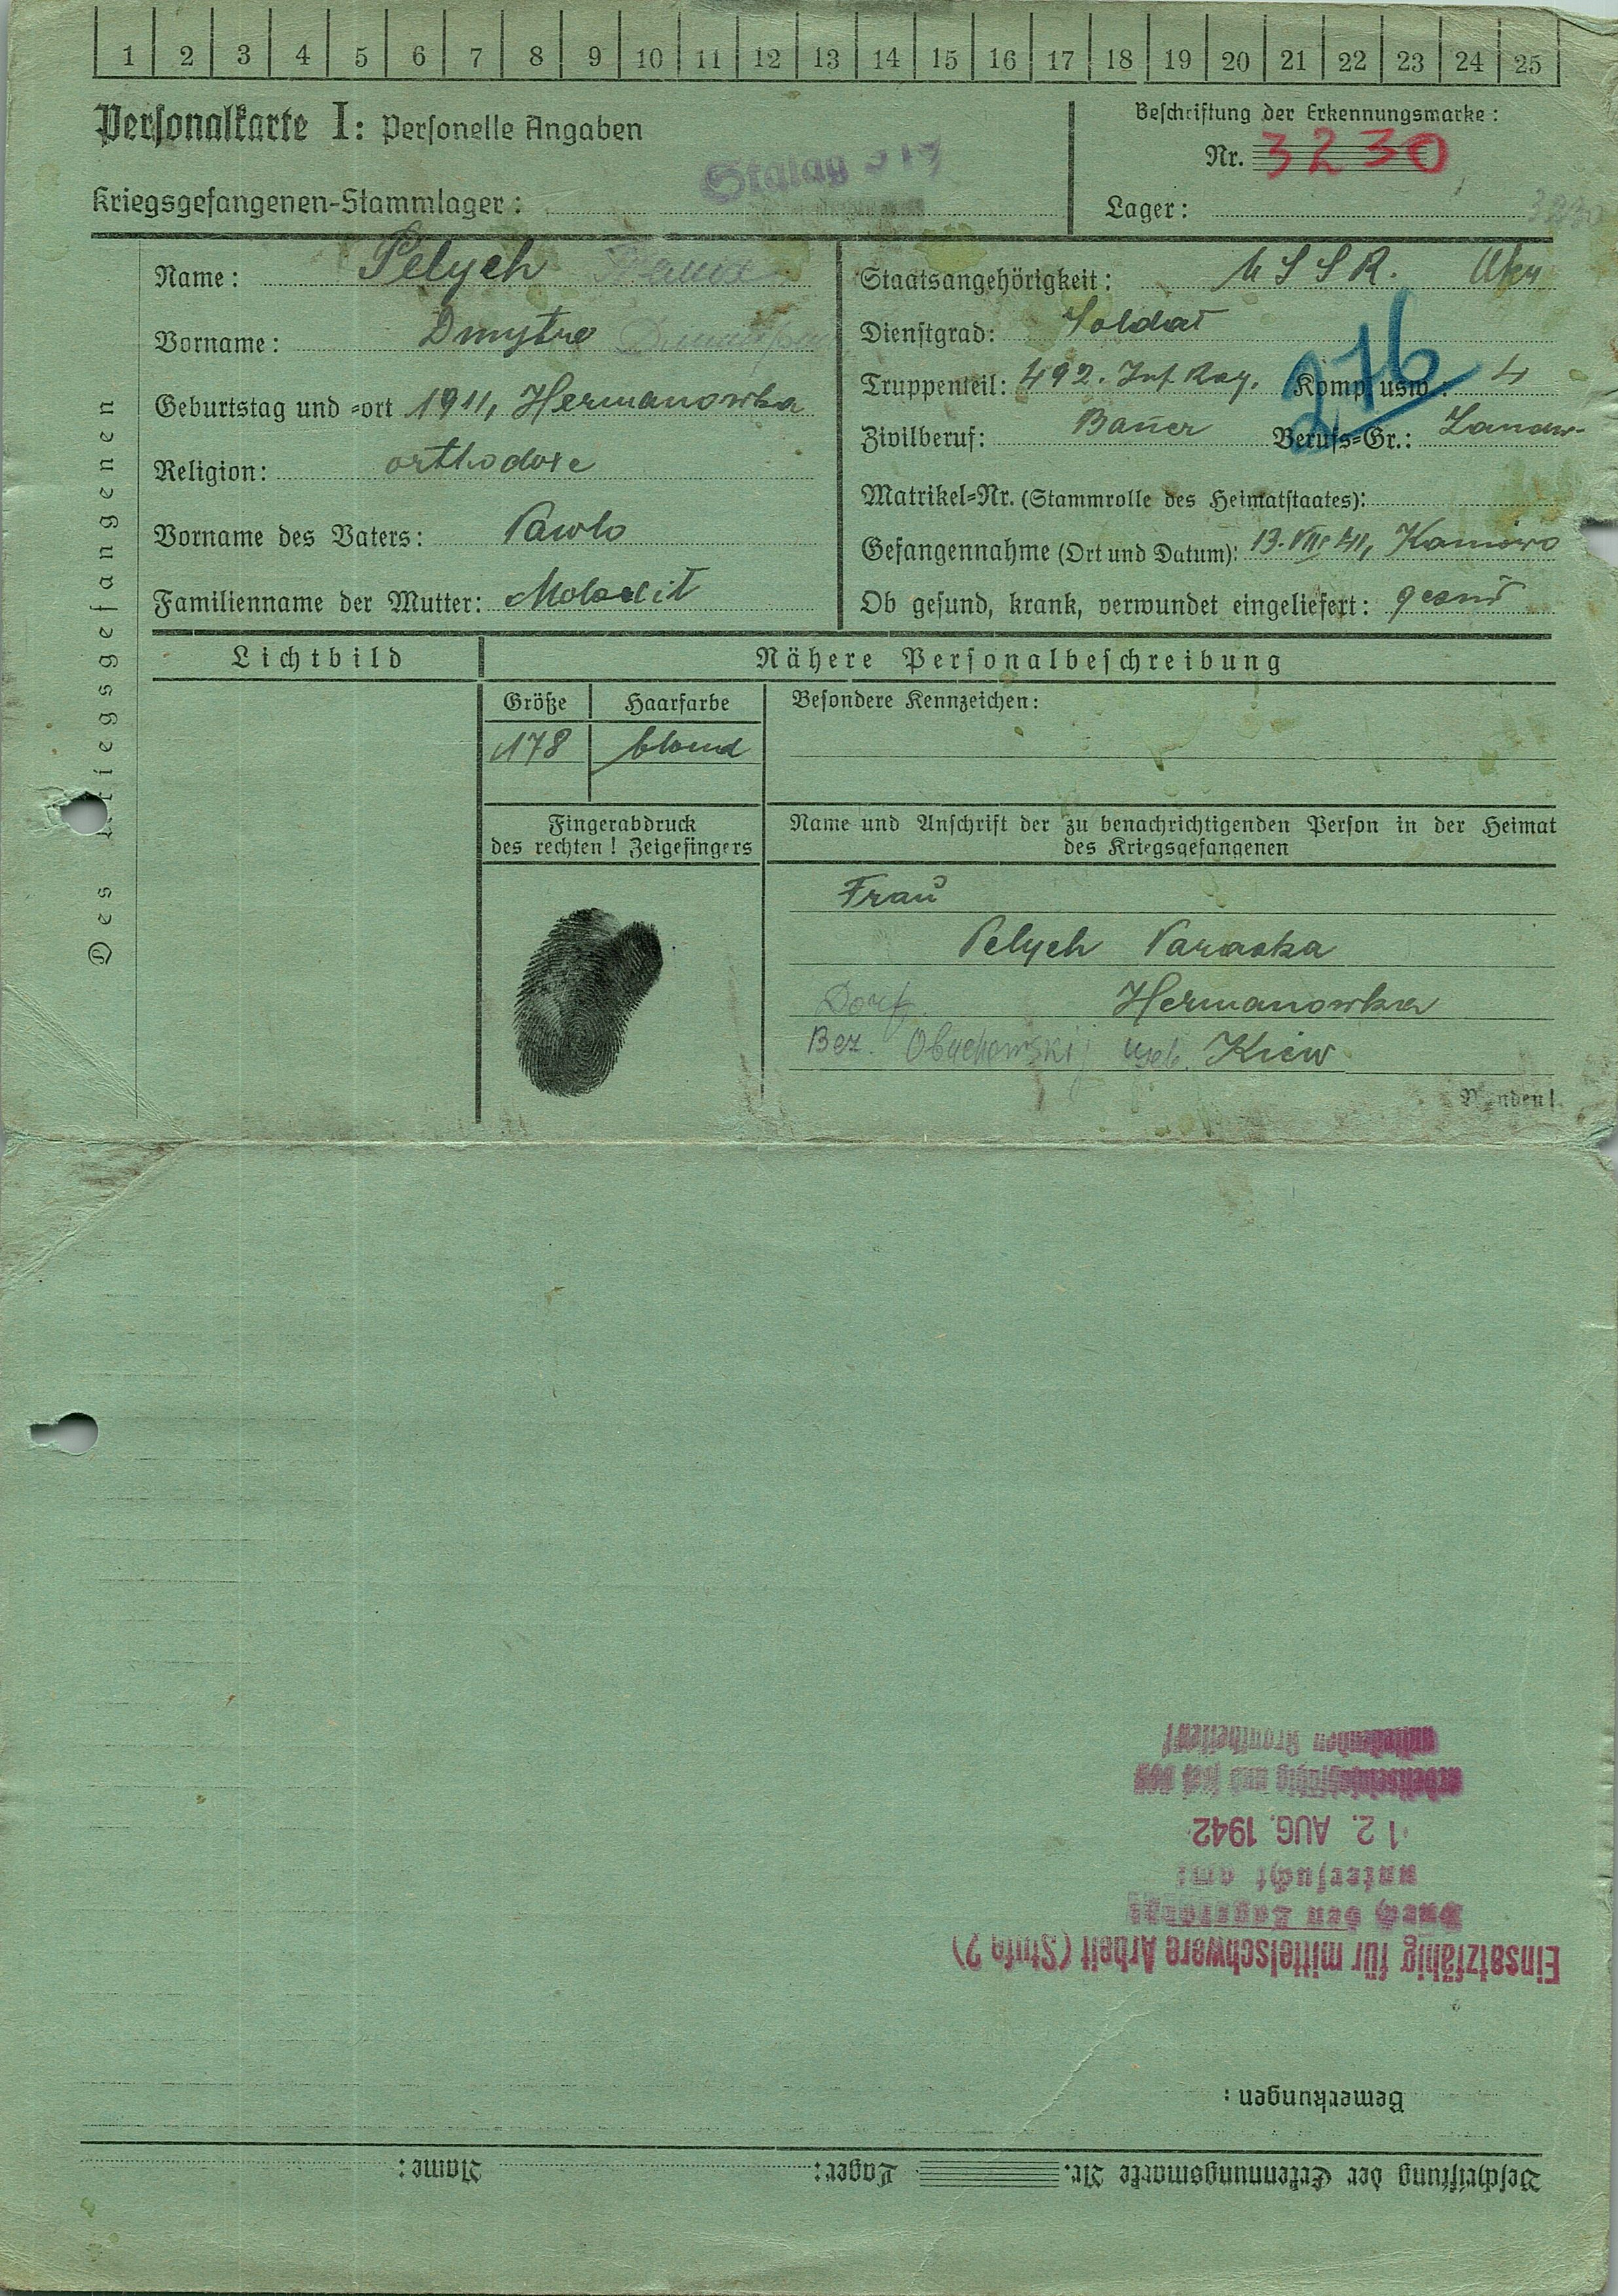 1 2 3 4 5 6 7 8 9 10 11 12 13 14 15 16 17 18 19 20 21 22 23 24 25
Personalkarte I: Personelle Angaben
Beschriftung der Erkennungsmarke:
Nr. 3230
Kriegsgefangenen-Stammlager: Stalag
Lager:
Des Kriegsgefangenen
Name: Pelych
Vorname: Dmytro
Geburtstag und -ort 1911, Hermanowka
Religion: orthodoxe
Vorname des Vaters: Pawlo
Familienname der Mutter:
Staatsangehörigkeit: USSR. Ukr
Dienstgrad: Soldat
Truppenteil: 492. Inf. Reg. Komp. usw.: 4
276
Zivilberuf: Bauer Berufs-Gr.: Landw.
Matrikel-Nr. (Stammrolle des Heimatstaates):
Gefangennahme (Ort und Datum): 13.VIII.41, Kaniowo
Ob gesund, krank, verwundet eingeliefert: gesund
Lichtbild
Nähere Personalbeschreibung
Größe Haarfarbe
178 blond
Besondere Kennzeichen:
Fingerabdruck
des rechten! Zeigefingers
Name und Anschrift der zu benachrichtigenden Person in der Heimat
des Kriegsgefangenen
Frau
Pelych Paraska
Dorf. Hermanowka
Bez. Obuchowskij Geb. Kiew
Wenden!
Beschriftung der Erkennungsmarke Nr. Lager: Name:
Bemerkungen:
Einsatzfähig für mittelschwere Arbeit (Stufe 2)
Durch den Lagerarzt
untersucht am:
12. AUG. 1942
arbeitseinsatzfähig und frei von
ansteckenden Krankheiten!